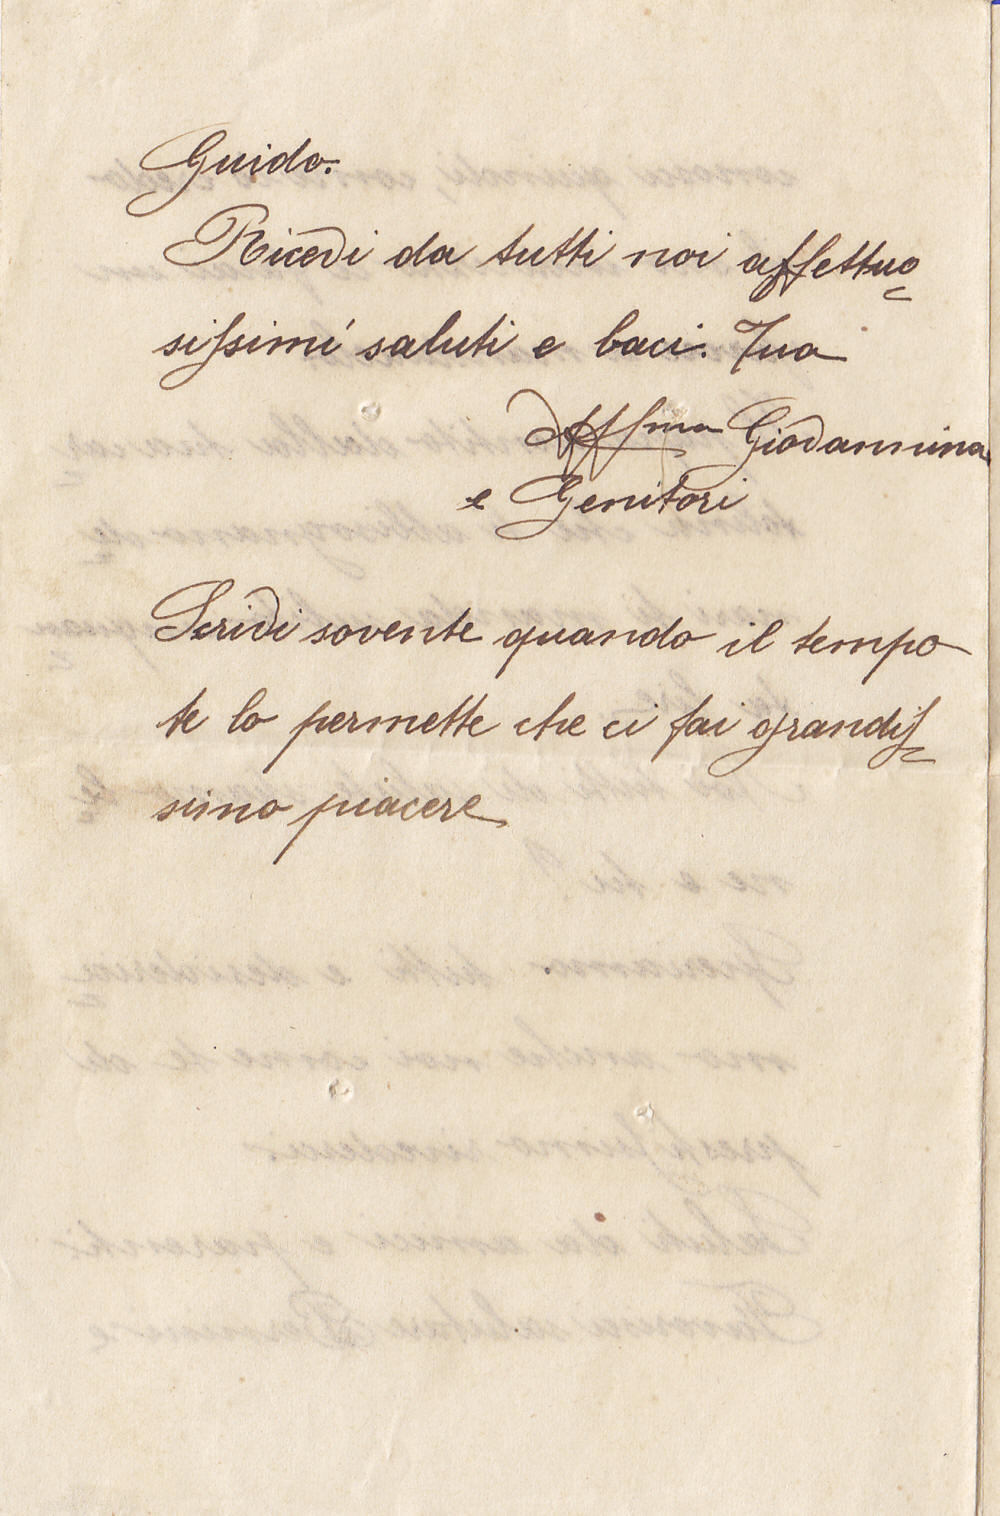 Guido.
Ricevi da tutti noi affettuo=
sissimi saluti e baci. Tua
Aff.ma Giovannina
e Genitori
Scrivi sovente quando il tempo
te lo permette che ci fai grandis=
simo piacere